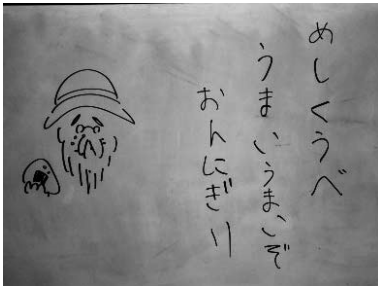 めしくうべ
うまいうまいぞ
おんにぎり